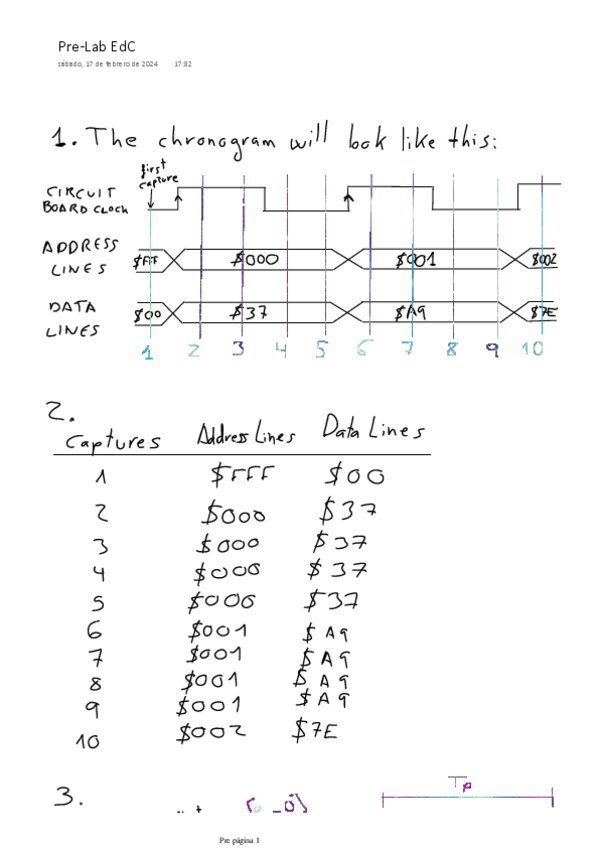 Pre-Lab EdC
sábado, 17 de febrero de 2024 17:32
1. The chronogram will look like this:
first
capture
CIRCUIT
BOARD CLOCK
ADDRESS
LINES
$FFF $000 $001 $002
DATA
LINES
$00 $37 $A9 $7E
1 2 3 4 5 6 7 8 9 10
2.
Captures Address Lines Data Lines
1 $FFF $00
2 $000 $37
3 $000 $37
4 $000 $37
5 $000 $37
6 $001 $A9
7 $001 $A9
8 $001 $A9
9 $001 $A9
10 $002 $7E
3.
Tp
Pre página 1